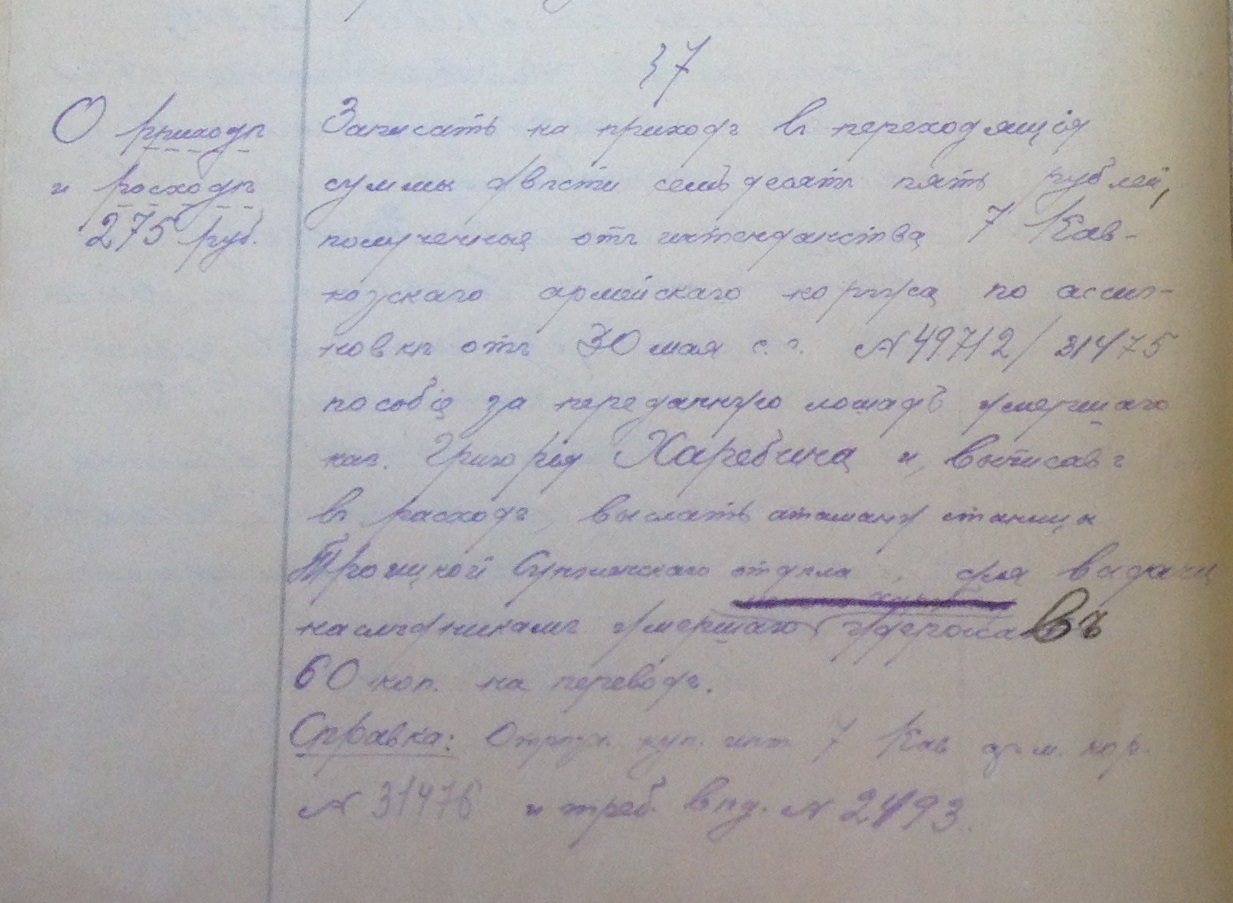 37
О приходѣ
и расходѣ
275 руб.
Записать на приходъ въ переходящія
суммы двѣсти семьдесятъ пять рублей,
полученные отъ интендантства 7 Кав-
казскаго армейскаго корпуса по ассиг-
новкѣ отъ 30 мая с. г. № 49712/31475
пособіе за переданную лошадь умершаго
каз. Григорія Харебина и, выписавъ
въ расходъ, выслать атаману станицы
Троицкой Сунженскаго отдѣла, для выдачи
наслѣдникамъ умершаго, удержавъ
60 коп. на переводъ.
Справка: инт. 7 Кав. арм. кор.
№ 31475 и треб. вѣд. № 2493.